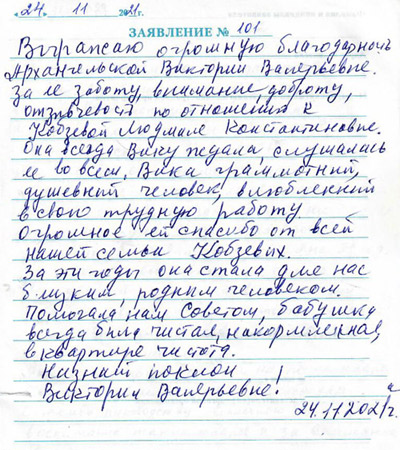 «24» 11 2021г.
ЗАЯВЛЕНИЕ № 101
Выражаю огромную благодарность
Архангельской Виктории Валерьевне.
За ее заботу, внимание, доброту,
отзывчевость по отношению к
Кобзевой Людмиле Константиновне.
Она всегда Вику ждала, слушалась
ее во всем, Вика грамотный,
душевный человек, влюбленный
в свою трудную работу
огромное ей спасибо от всей
нашей семьи Кобзевых.
За эти годы она стала для нас
близким, родным человеком.
Помогала нам Советом, бабушка
всегда была чистая, накормленная,
в квартире чистота.
Низкий поклон
Виктории Валерьевне!
24.11.2021г.